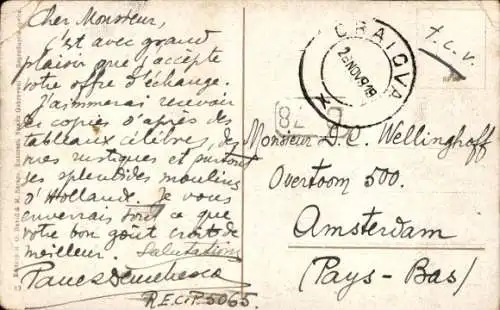 Cher Monsieur,
C'est avec grand
plaisir que j'accepte
votre offre d'échange.
J'aimerai recevoir
les copies d'après des
tableaux célèbres, des
rues rustiques et surtout
ses splendides moulins
d'Hollande. Je vous
enverrais tout ce que
votre bon goût croit de
meilleur. Salutations
R.E.C.P. 5065.
CRAIOVA
NOV 919
T.C.V.
82
Monsieur D.C. Wellinghoff
Overtoom 500.
Amsterdam
(Pays-Bas)